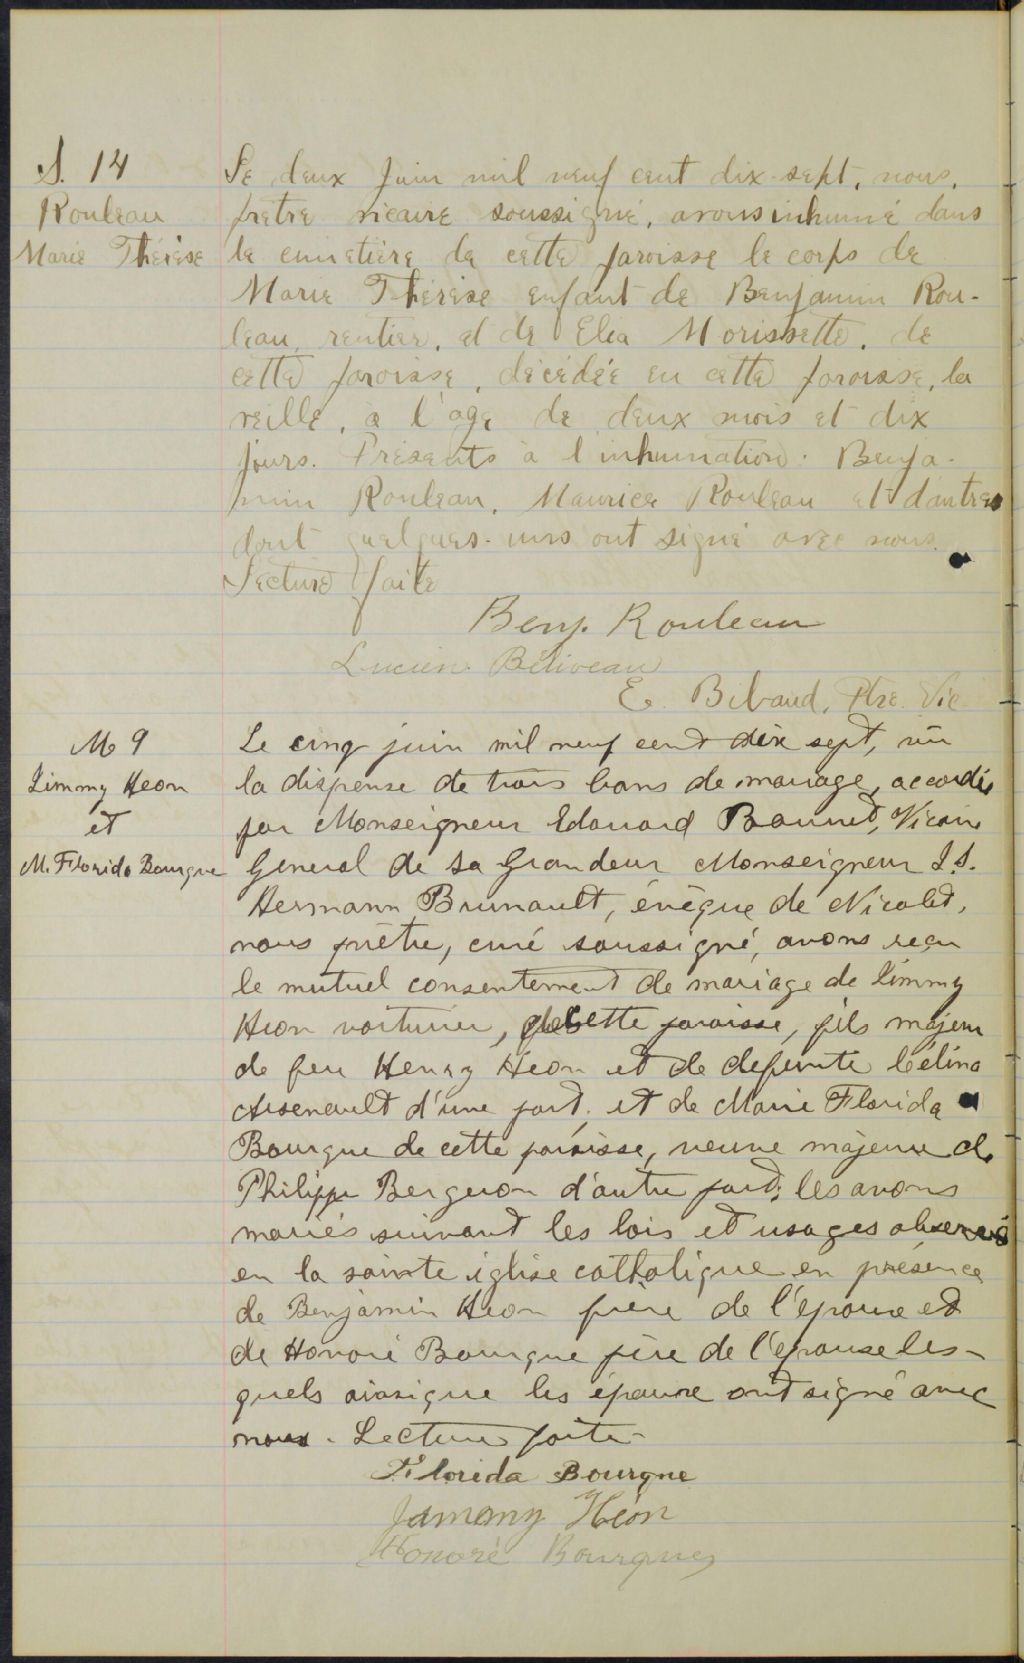 S. 14
Rouleau
Marie Thérèse
Le deux Juin mil neuf cent dix-sept, nous,
prêtre vicaire soussigné, avons inhumé dans
le cimetière de cette paroisse le corps de
Marie Thérèse enfant de Benjamin Rou-
leau, rentier, et de Elia Morissette, de
cette paroisse, décédée en cette paroisse, la
veille, à l'age de deux mois et dix
jours. Présents à l'inhumation: Benja-
min Rouleau, Maurice Rouleau et d'autres
dont quelques-uns ont signé avec nous.
Lecture faite
Benj. Rouleau
Lucien Béliveau
E. Bibaud, Ptre. Vic
M 9
Jimmy Heon
et
M. Florida Bourque
Le cinq juin mil neuf cent dix sept, vu
la dispense de trois bans de mariage, accordée
par Monseigneur Edouard Bournet, Vicaire
General de Sa Grandeur Monseigneur J.S.
Hermann Brunault, évêque de Nicolet,
nous prêtre, curé soussigné, avons reçu
le mutuel consentement de mariage de Jimmy
Heon voiturier, de cette paroisse, fils majeur
de feu Henry Heon et de defunte Célina
Arsenault d'une part, et de Marie Florida
Bourque de cette paroisse, veuve majeure de
Philippe Bergeron d'autre part; les avons
mariés suivant les lois et usages observés
en la sainte église catholique en présence
de Benjamin Heon frère de l'époux et
de Honoré Bourque père de l'épouse les-
quels ainsi que les époux ont signé avec
nous. Lecture faite
Florida Bourque
Jammy Héon
Honoré Bourque